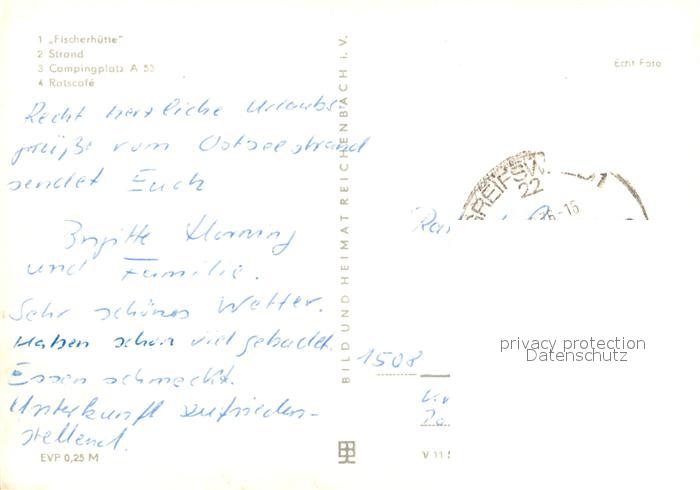 1 „Fischerhütte"
2 Strand
3 Campingplatz A 53
4 Ratscafé
Echt Foto
Recht herzliche Urlaubs-
grüße vom Ostseestrand
sendet Euch
Brigitte
und Familie.
Sehr schönes Wetter.
Haben schon viel gebadet.
Essen schmeckt.
Unterkunft zufrieden-
stellend.
EVP 0,25 M
BILD UND HEIMAT REICHENBACH i. V.
GREIFSW
22
-16
1508
privacy protection
Datenschutz
V 11